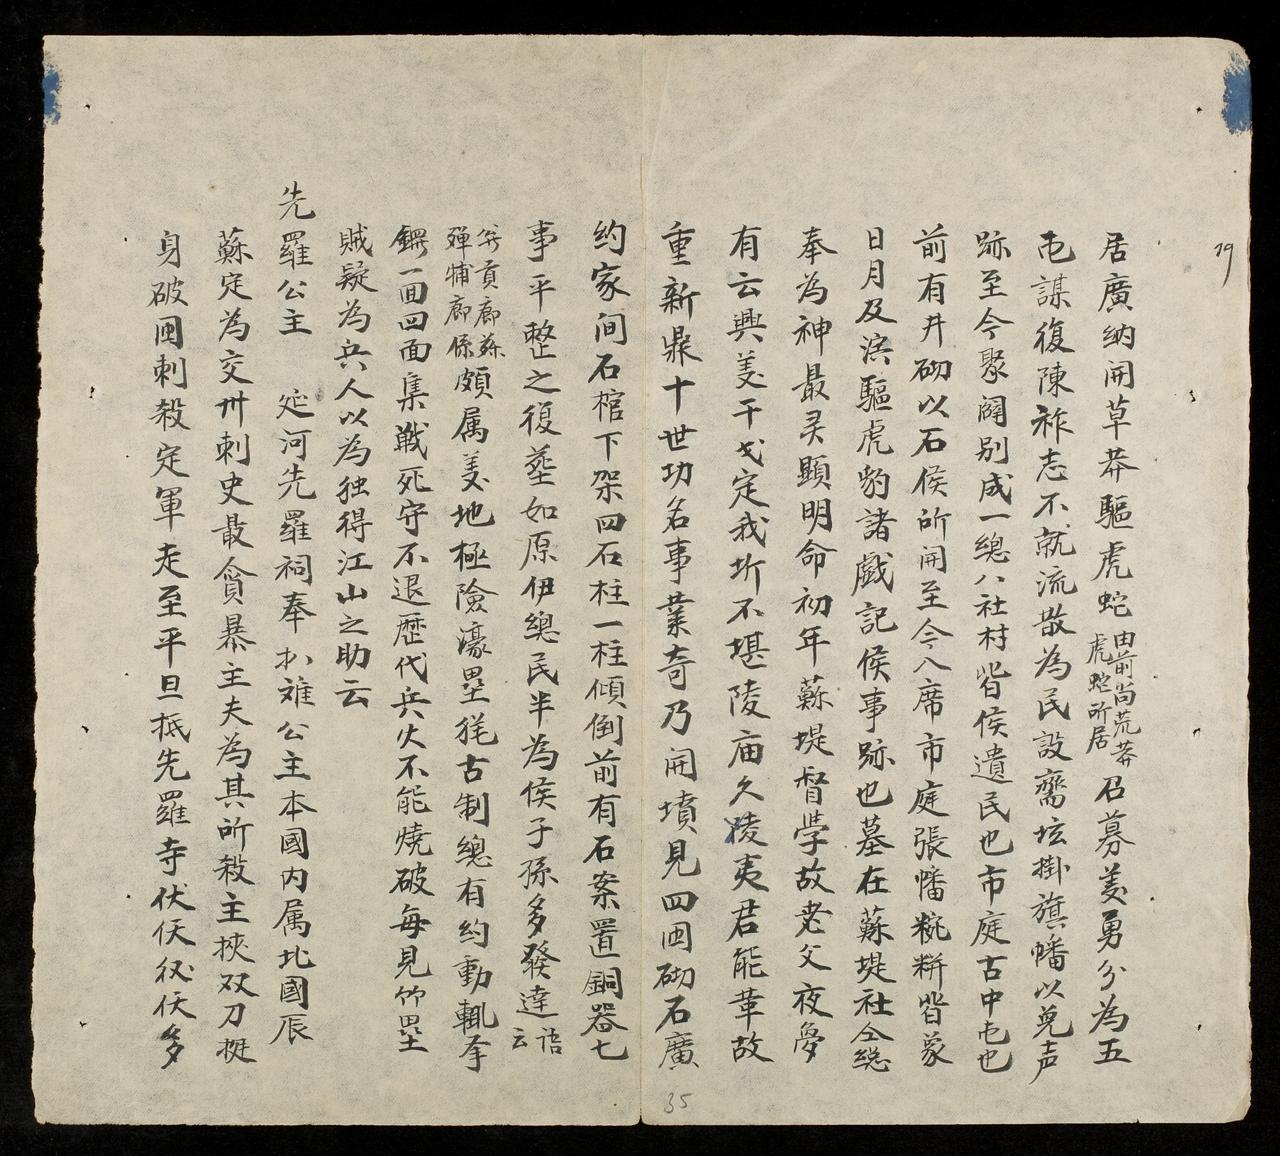 19
居廣納開草莽驅虎蛇由前尚荒莽虎蛇所居召募義勇分為五
屯謀復陳祚志不就流散為民設齋坛掛旗幡以兇声
跡至今聚闢別成一總八社村皆侯遺民也市庭古中屯也
前有井砌以石侯所開至今入席市庭張幡糍餅皆象
日月及演驅虎豹諸戲記侯事跡也墓在蘇堤社仝総
奉為神最灵顯明命初年蘇堤督學故老父夜夢
有云興義干戈定我圻不堪陵庙久陵夷君能革故
重新鼎十世功名事業奇乃開墳見四囬砌石廣
約家间石棺下架四石柱一柱傾倒前有石案置銅器七
事平整之復葬如原伊總民半為侯子孫多發達云語
貢廊蘇殫哺廊係頗属美地極險濠壘猶古制總有約動輒拿
鑼一囬四面集戰死守不退歷代兵火不能燒破每見竹壘
賊疑為兵人以為独得江山之助云
先羅公主 延河先羅祠奉扒难公主本國内属北國辰
蘇定為交州刺史最貪暴主夫為其所殺主挾双刀挺
身破圍刺殺定軍走至平旦抵先羅寺伏仸後仸多
35